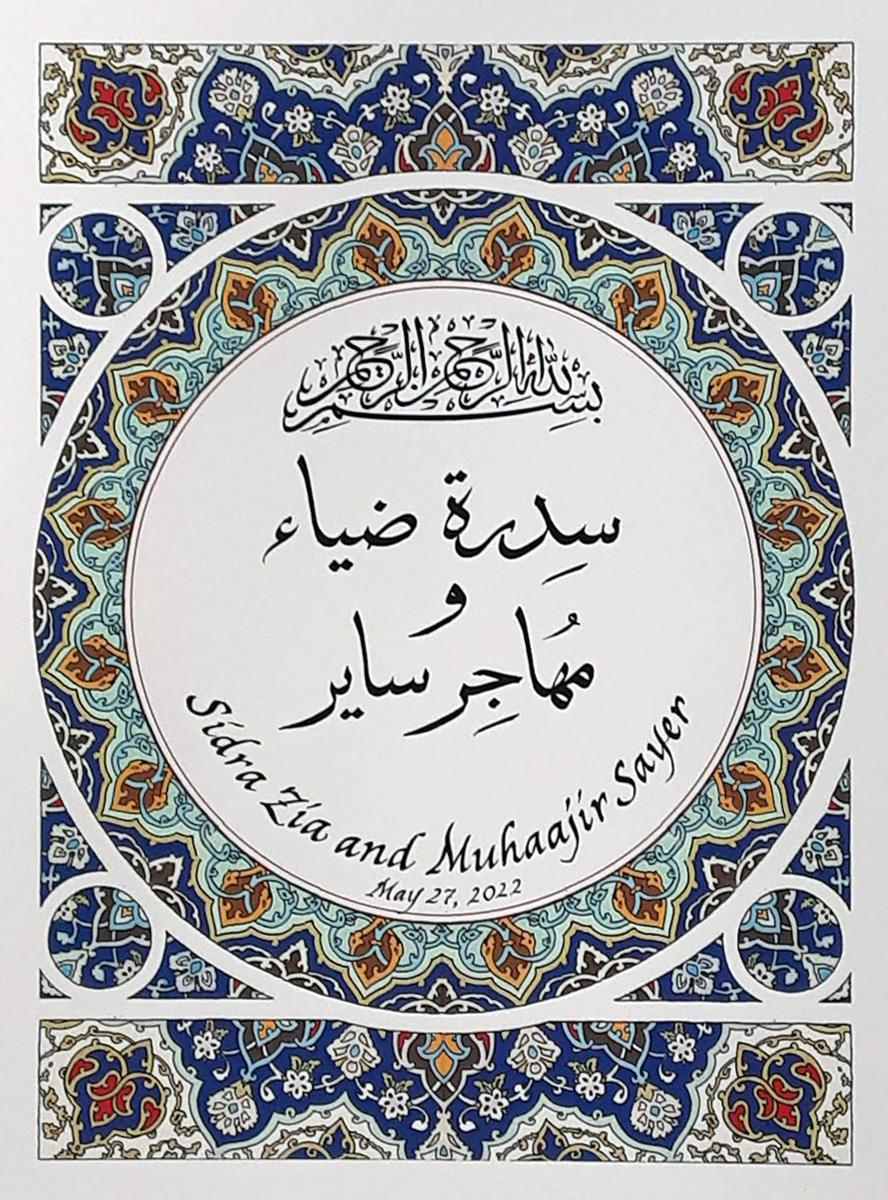 بِسْمِ اللهِ الرَّحْمٰنِ الرَّحِيمِ
سِدرة ضياء
و
مُهاجِر ساير
Sidra Zia and Muhaajir Sayer
May 27, 2022